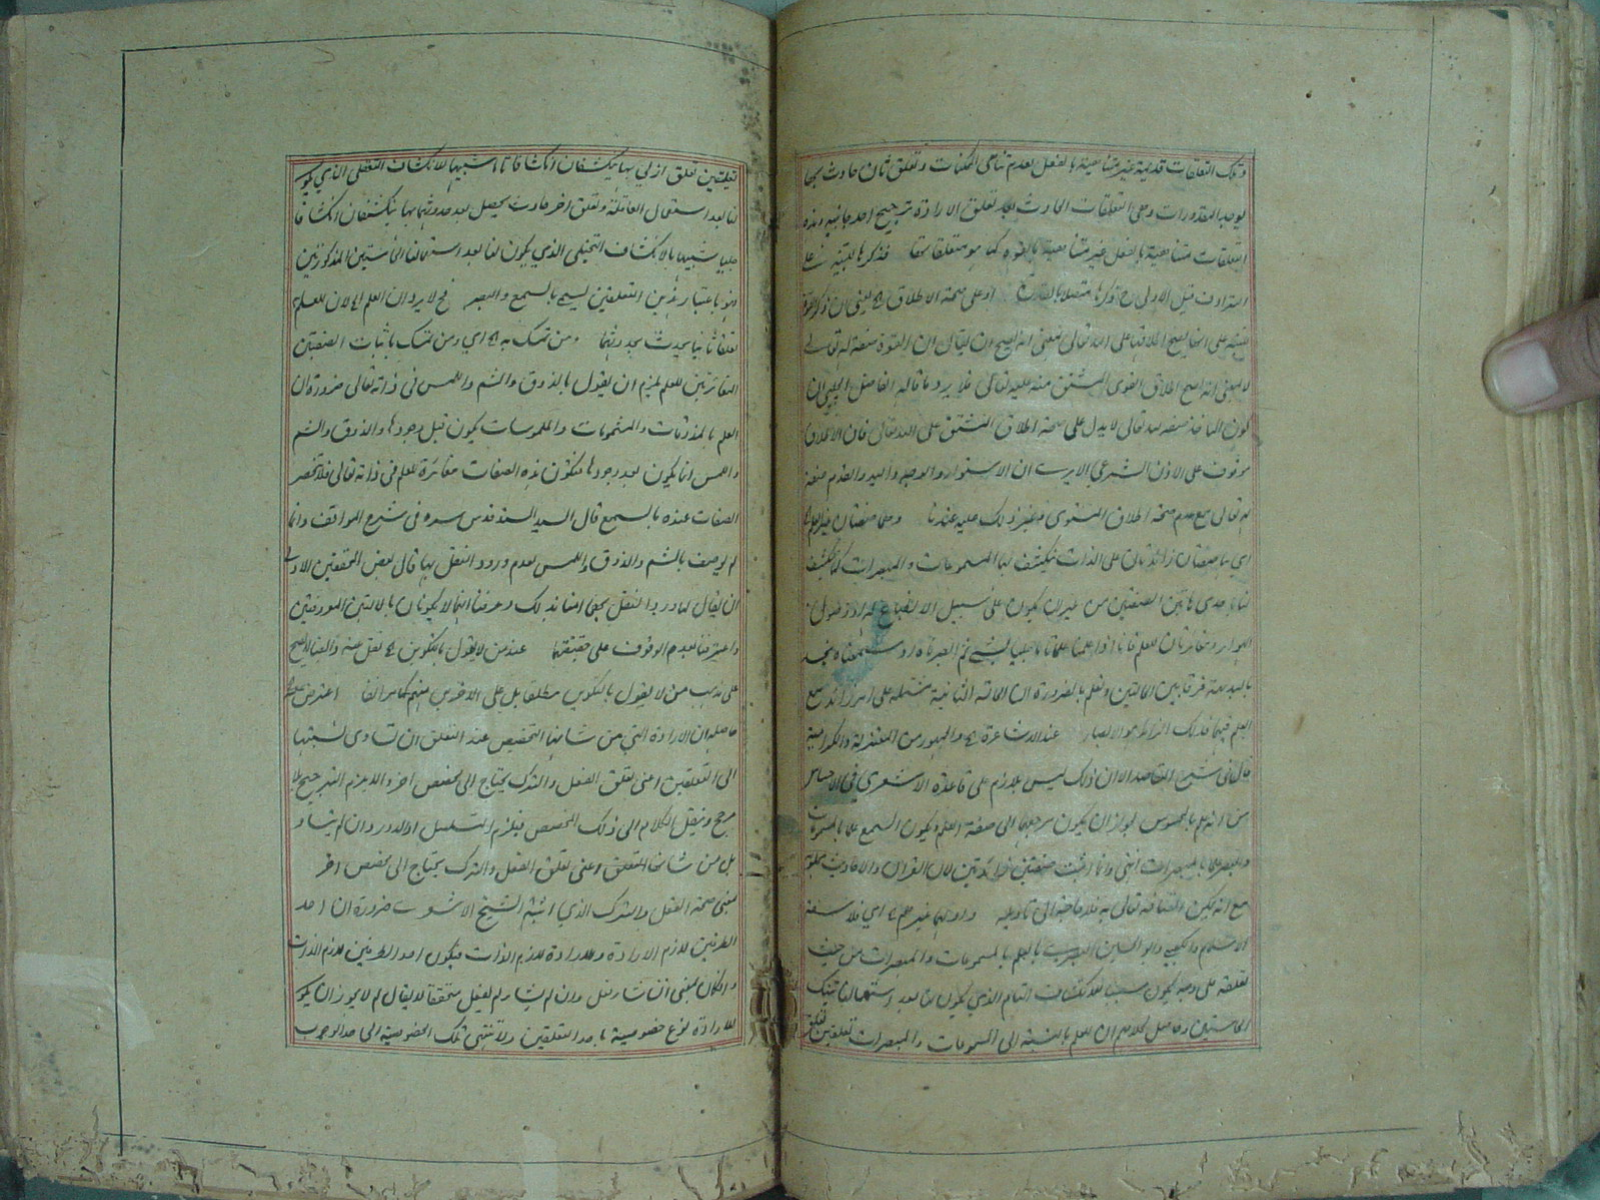 وتلك التعلقات قديمة غير متناهية بالفعل لعدم تناهى الممكنات وتعلق ثان حادث بها
يوجد المقدورات وهى التعلقات الحادثة بعد تعلق الارادة ترجيح احد جانبيه وهذه
التعلقات متناهية بالفعل غير متناهية بالقوة كما هو متعلقاتها فذكرها للتنبيه على
الترادف قيل الاولى ذكرها متصلا بالقدرة او على صحة الاطلاق
على انها يصح اطلاقها على الله تعالى بمعنى انه يصح ان يقال ان القوة صفة له تعالى
لا بمعنى انه يصح اطلاق القوى المشتق منه عليه تعالى فلا يرد ما قاله الفاضل الچلپى ان
كون المأخذ صفة له تعالى لا يدل على صحة اطلاق المشتق على الله تعالى فان الاطلاق
موقوف على الاذن الشرعى الا يرى ان الاستواء والوجه واليد والقدم صفة
له تعالى مع عدم صحة اطلاق المستوى وغير ذلك عليه عندنا وهما صفتان غير العلم
اى هما صفتان زائدتان على الذات ينكشف بهما المسموعات والمبصرات كما ينكشف
لنا باحدى هاتين الصفتين من غير ان يكون على سبيل الانطباع او وصول
الهواء ومغايرتان للعلم فانا اذا علمنا علما تاما جليا بشئ ثم ابصرناه او سمعناه نجد
بالبديهة فرقا بين الحالتين ونعلم بالضرورة ان الحالة الثانية مشتملة على امر زائد مع
العلم فيهما فذلك الزائد هو الابصار عند الاشاعرة والجمهور من المعتزلة والكرامية
قال فى شرح المقاصد الا ان ذلك ليس بلازم على قاعدة الاشعرى فى الاحساس
من انه علم بالمحسوس لجواز ان يكون مرجعهما الى صفة العلم ويكون السمع علما بالمسموعات
والبصر علما بالمبصرات انتهى وانما اثبت صفتين زائدتين لان القرآن والاحاديث
مع انه يمكن اتصافه تعالى به فلا حاجة الى تاويله واولهما غيرهم اى فلاسفة
الاسلام والكعبى وابو الحسين البصرى بالعلم بالمسموعات والمبصرات من حيث
تعلقه على وجه يكون سببا للانكشاف التام الذى يكون لنا بعد استعمالنا تينك
الحاستين وحاصل كلامهم ان للعلم بالنسبة الى المسموعات والمبصرات تعلقين تعلق
تعلقين تعلق ازلى بها ينكشفان انكشافا تاما شبيها للانكشاف التعقلى الذى يكون
لنا بعد استعمال العاقلة وتعلق اخر حادث يحصل بعد حدوثهما بها ينكشفان انكشافا
جليا شبيها بالانكشاف التخيلى الذى يكون لنا بعد استعمالنا الحاستين المذكورتين
وهو باعتبار هذين التعلقين يسمى بالسمع والبصر فح لا يرد ان العلم الخ لان للعلم
تعلقا ثانيا يحدث بحدوثهما ومن تمسك به الخ اى ومن تمسك باثبات الصفتين
المغايرتين للعلم يلزم ان يقول بالذوق والشم واللمس فى ذاته تعالى ضرورة ان
العلم بالمذوقات والمشمومات والملموسات يكون قبل وجودها والذوق والشم
واللمس انما يكون بعد وجودها فتكون هذه الصفات مغائرة للعلم فى ذاته تعالى فلا تنحصر
الصفات عنده بالسمع قال السيد السند قدس سره فى شرح المواقف وانما
لم يوصف بالشم والذوق واللمس لعدم ورود النقل بها قال بعض المحققين الاولى
ان يقال لما ورد النقل بهما امنا بذلك وعرفنا انهما لا يكونان بالالتين المعروفتين
واعترفنا بعدم الوقوف على حقيقتهما عند من لا يقول بالتكوين الخ نقل عنه
على مذهب من لا يقول بالتكوين مطلقا بل على الاخرى منهم كما مر آنفا اعترض عليه
حاصله ان الارادة التى من شانها التخصيص عند التعلق ان تساوى نسبتها
الى التعلقين اعنى تعلق الفعل والترك يحتاج الى مخصص اخر والا يلزم الترجيح بلا
مرجح وينقل الكلام الى ذلك المخصص فيلزم التسلسل او الدور وان لم يتساو
بل من شانها التعلق وعنى تعلق الفعل والترك يحتاج الى مخصص اخر
بمعنى صحة الفعل والترك الذى اثبته الشيخ الاشعرى ضرورة ان احد
الطرفين لازم الارادة والارادة لازم الذات فيكون احد الطرفين لازم الذات
وان كان بمعنى ان شاء فعل وان لم يشاء لم يفعل متحققا لا يقال لم لا يجوز ان يكون
للارادة نوع خصوصية باحد التعلقين ولا تنتهى تلك الخصوصية الى حد الوجوب